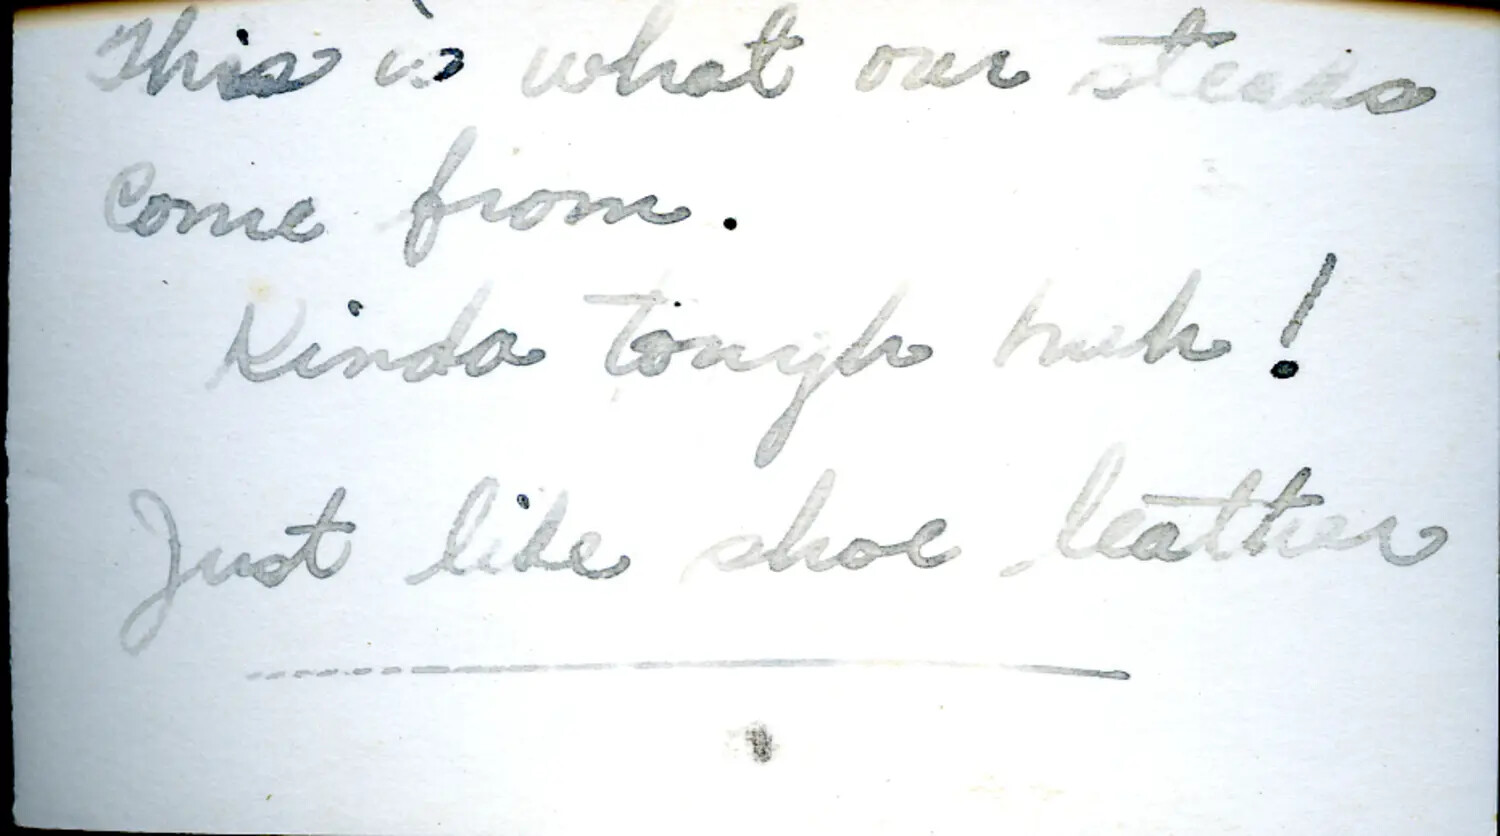 This is what our steaks
come from.
Kinda tough huh!
Just like shoe leather